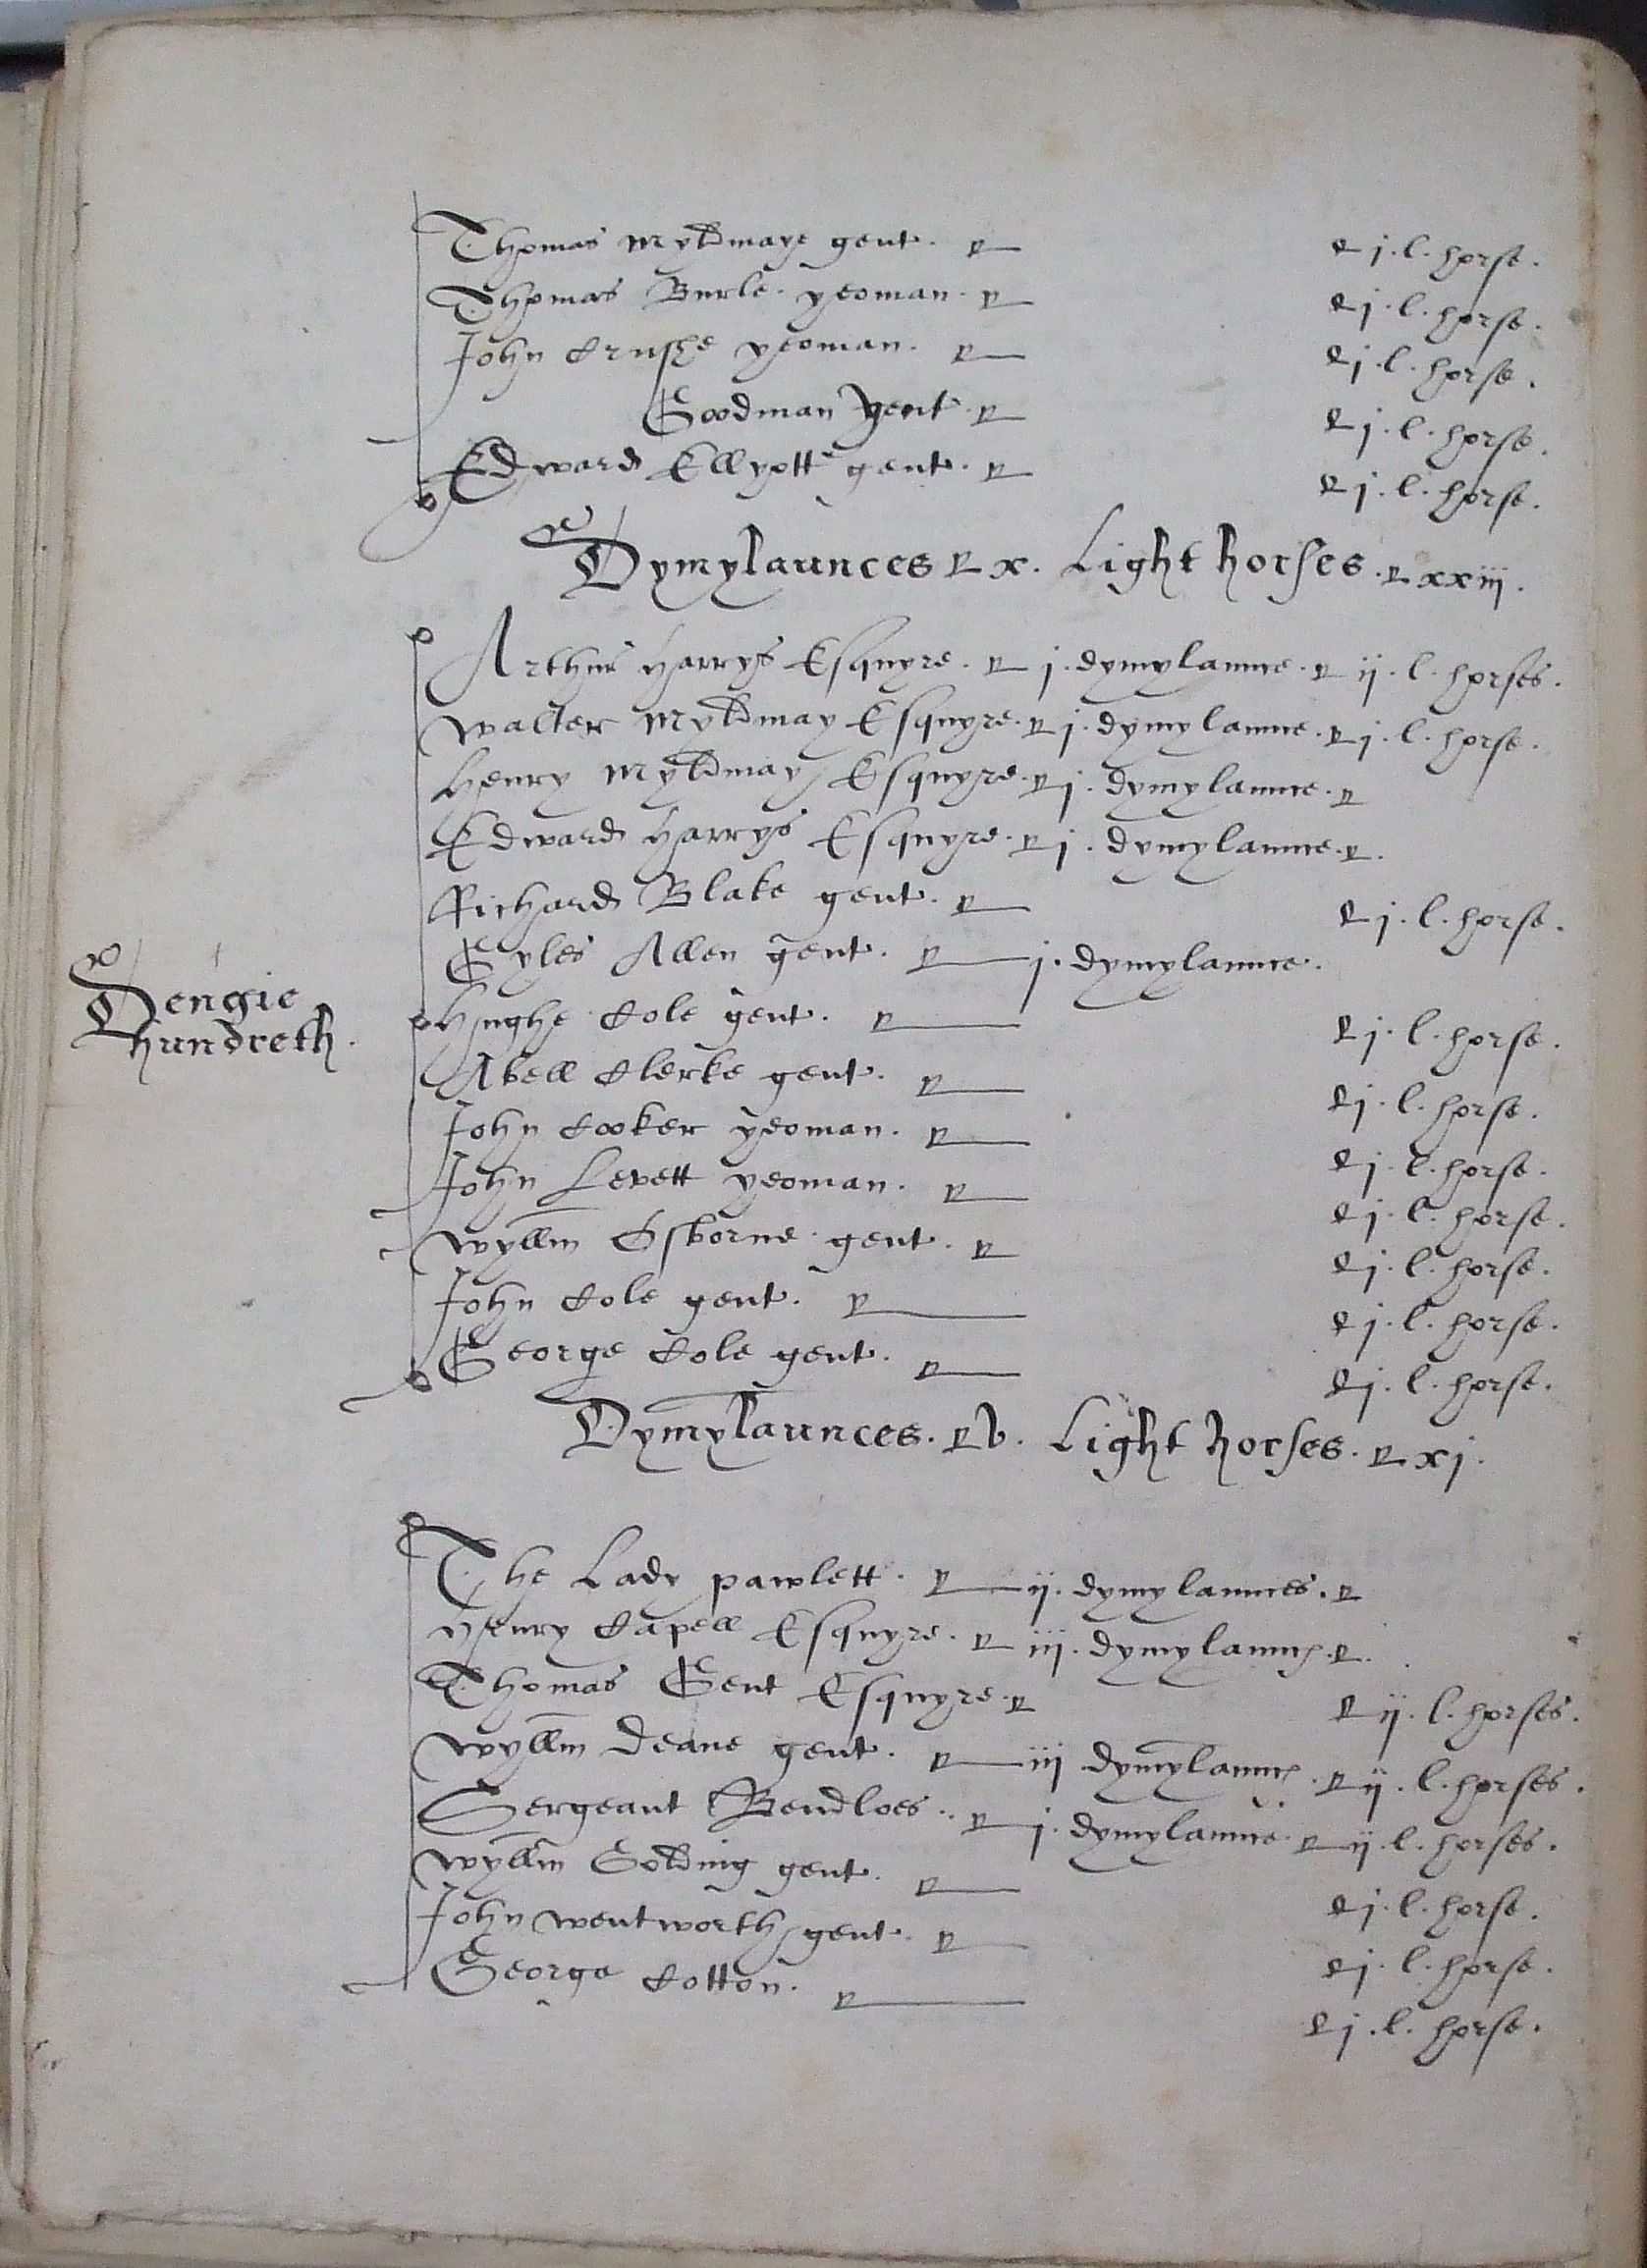 Thomas Myldmaye gent. j. l. horse.
Thomas Burle. yeoman. j. l. horse.
John Crushe yeoman. j. l. horse.
Goodman gent. j. l. horse.
Edward Ellyott gent. j. l. horse.
Dymylaunces x. Light horses. xxiij.
Arthur Harrys Esquyre. j. dymylaunce. ij. l. horses.
Walter Myldmay Esquyre. j. dymylaunce. j. l. horse.
Henry Myldmay Esquyre. j. dymylaunce.
Edward Harrys Esquyre. j. dymylaunce.
Richard Blake gent. j. l. horse.
Gyles Allen gent. j. dymylaunce.
Dengie
hundreth.
Hughe Cole gent. j. l. horse.
Abell Clerke gent. j. l. horse.
John Cooker yeoman. j. l. horse.
John Levett yeoman. j. l. horse.
Wyllm Osborne gent. j. l. horse.
John Cole gent. j. l. horse.
George Cole gent. j. l. horse.
Dymylaunces. v. Light horses. xj.
The Lady pawlett. ij. dymylaunces.
Henry Capell Esquyre. iij. dymylaunc.
Thomas Gent Esquyre ij. l. horses.
Wyllm Deane gent. iij dymylaunc. ij. l. horses.
Sergeant Bendloes. j. dymylaunce. ij. l. horses.
Wyllm Golding gent. j. l. horse.
John Wentworth gent. j. l. horse.
George Cotton. j. l. horse.